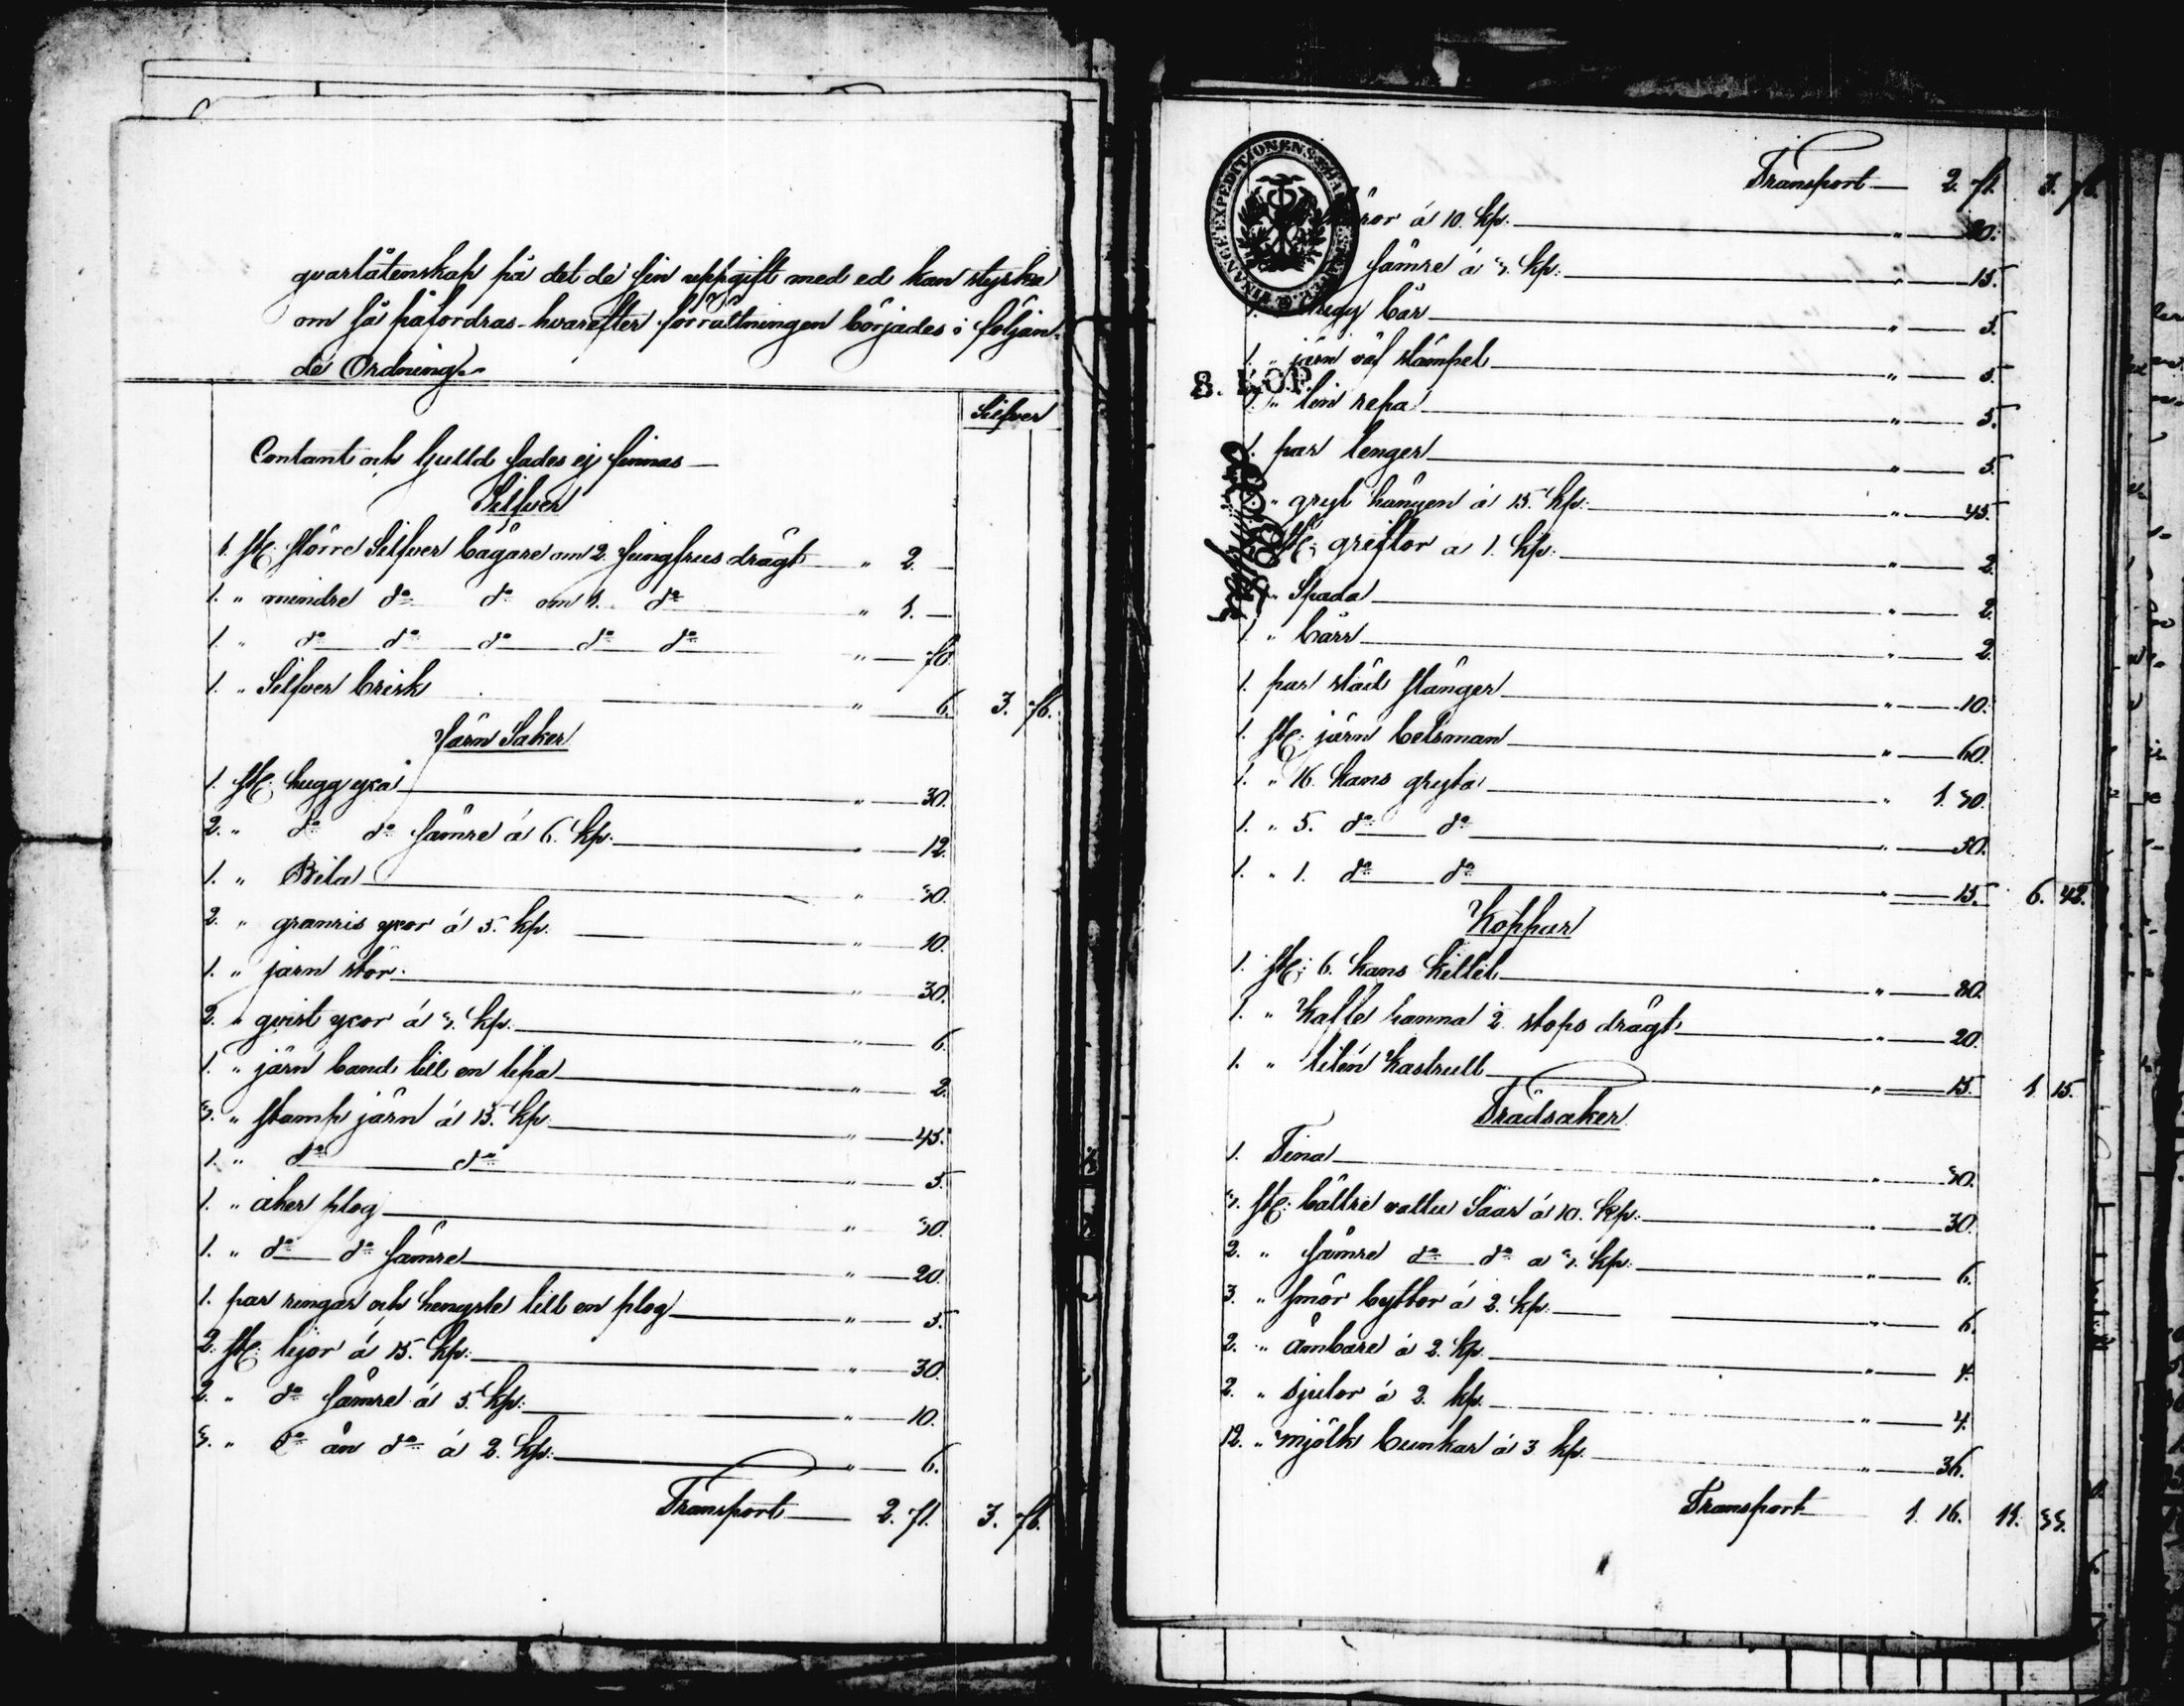 qvarlåtenskap på det de sin uppgift med ed kan styrka
om så påfordras hvarefter förrättningen börjades i följan-
de Ordning.
Silfver
Contant och Guld sades ej finnas —
Silfver
1. st: större Silfver bägare om 2. jungfrus drägt " 2. —
1. " mindre do do om 1. do " 1. —
1. " do do do do do " — 70.
1. " Silfver brisk " 6. 3. 76.
Järn Saker
1. st: hugg yxa " — 30.
2. " do do sämre á 6. kp. " — 12.
1. " Bila " — 30.
2. " granris yxor á 5. kp. " — 10.
1. " järn stör " — 30.
2. " qvist yxor á 3. kp. " — 6.
1. " järn band till en lepa " — 2.
3. " stamp järn á 15. kp. " — 45.
1. " do do " — 5.
1. " åker plog " — 30.
1. " do do sämre " — 20.
1. par ringar och hengsle till en plog " — 5.
2. st: lijor á 15. kp. " — 30.
2. " do sämre á 5. kp. " — 10.
3. " do än do á 2. kp. " — 6.
Transport — 2. 71. 3. 76.
FINANCE EXPEDITIONENS
8. KOP.
Transport — 2. 71. 3. 76.
á 10. kp. " — 20.
sämre á 3. kp. " — 15.
bär " — 5.
1. " järn väf stämpel " — 5.
1. " lin repa " — 5.
1. par tenger " — 5.
" gryt hängen á 15. kp. " — 45.
st: greftor a 1. kp. " — 2.
" Spada " — 2.
1. " bårr " — 2.
1. par städ stänger " — 10.
1. st: järn betsman " — 60.
1. " 16. kans gryta " 1. 50.
1. " 5. do do " — 50.
1. " 1. do do " — 15. 6. 42.
Koppar
1. st: 6. kans kittel " — 80.
1. " Kaffe kanna 2. stops drägt " — 20.
1. " liten Kastrull " — 15. 1 15.
Trädsaker
1. Tina " — 30.
3. st: bättre vattu Såar á 10. kp. " — 30.
2. " sämre do do a 3. kp. " — 6.
3. " smör byttor á 2. kp. " — 6.
2. " Ämbare á 2. kp. " — 4.
2. " Stjulor á 2. kp. " — 4.
12. " mjölk bunkar á 3 kp. " — 36.
Transport 1. 16. 11. 33.